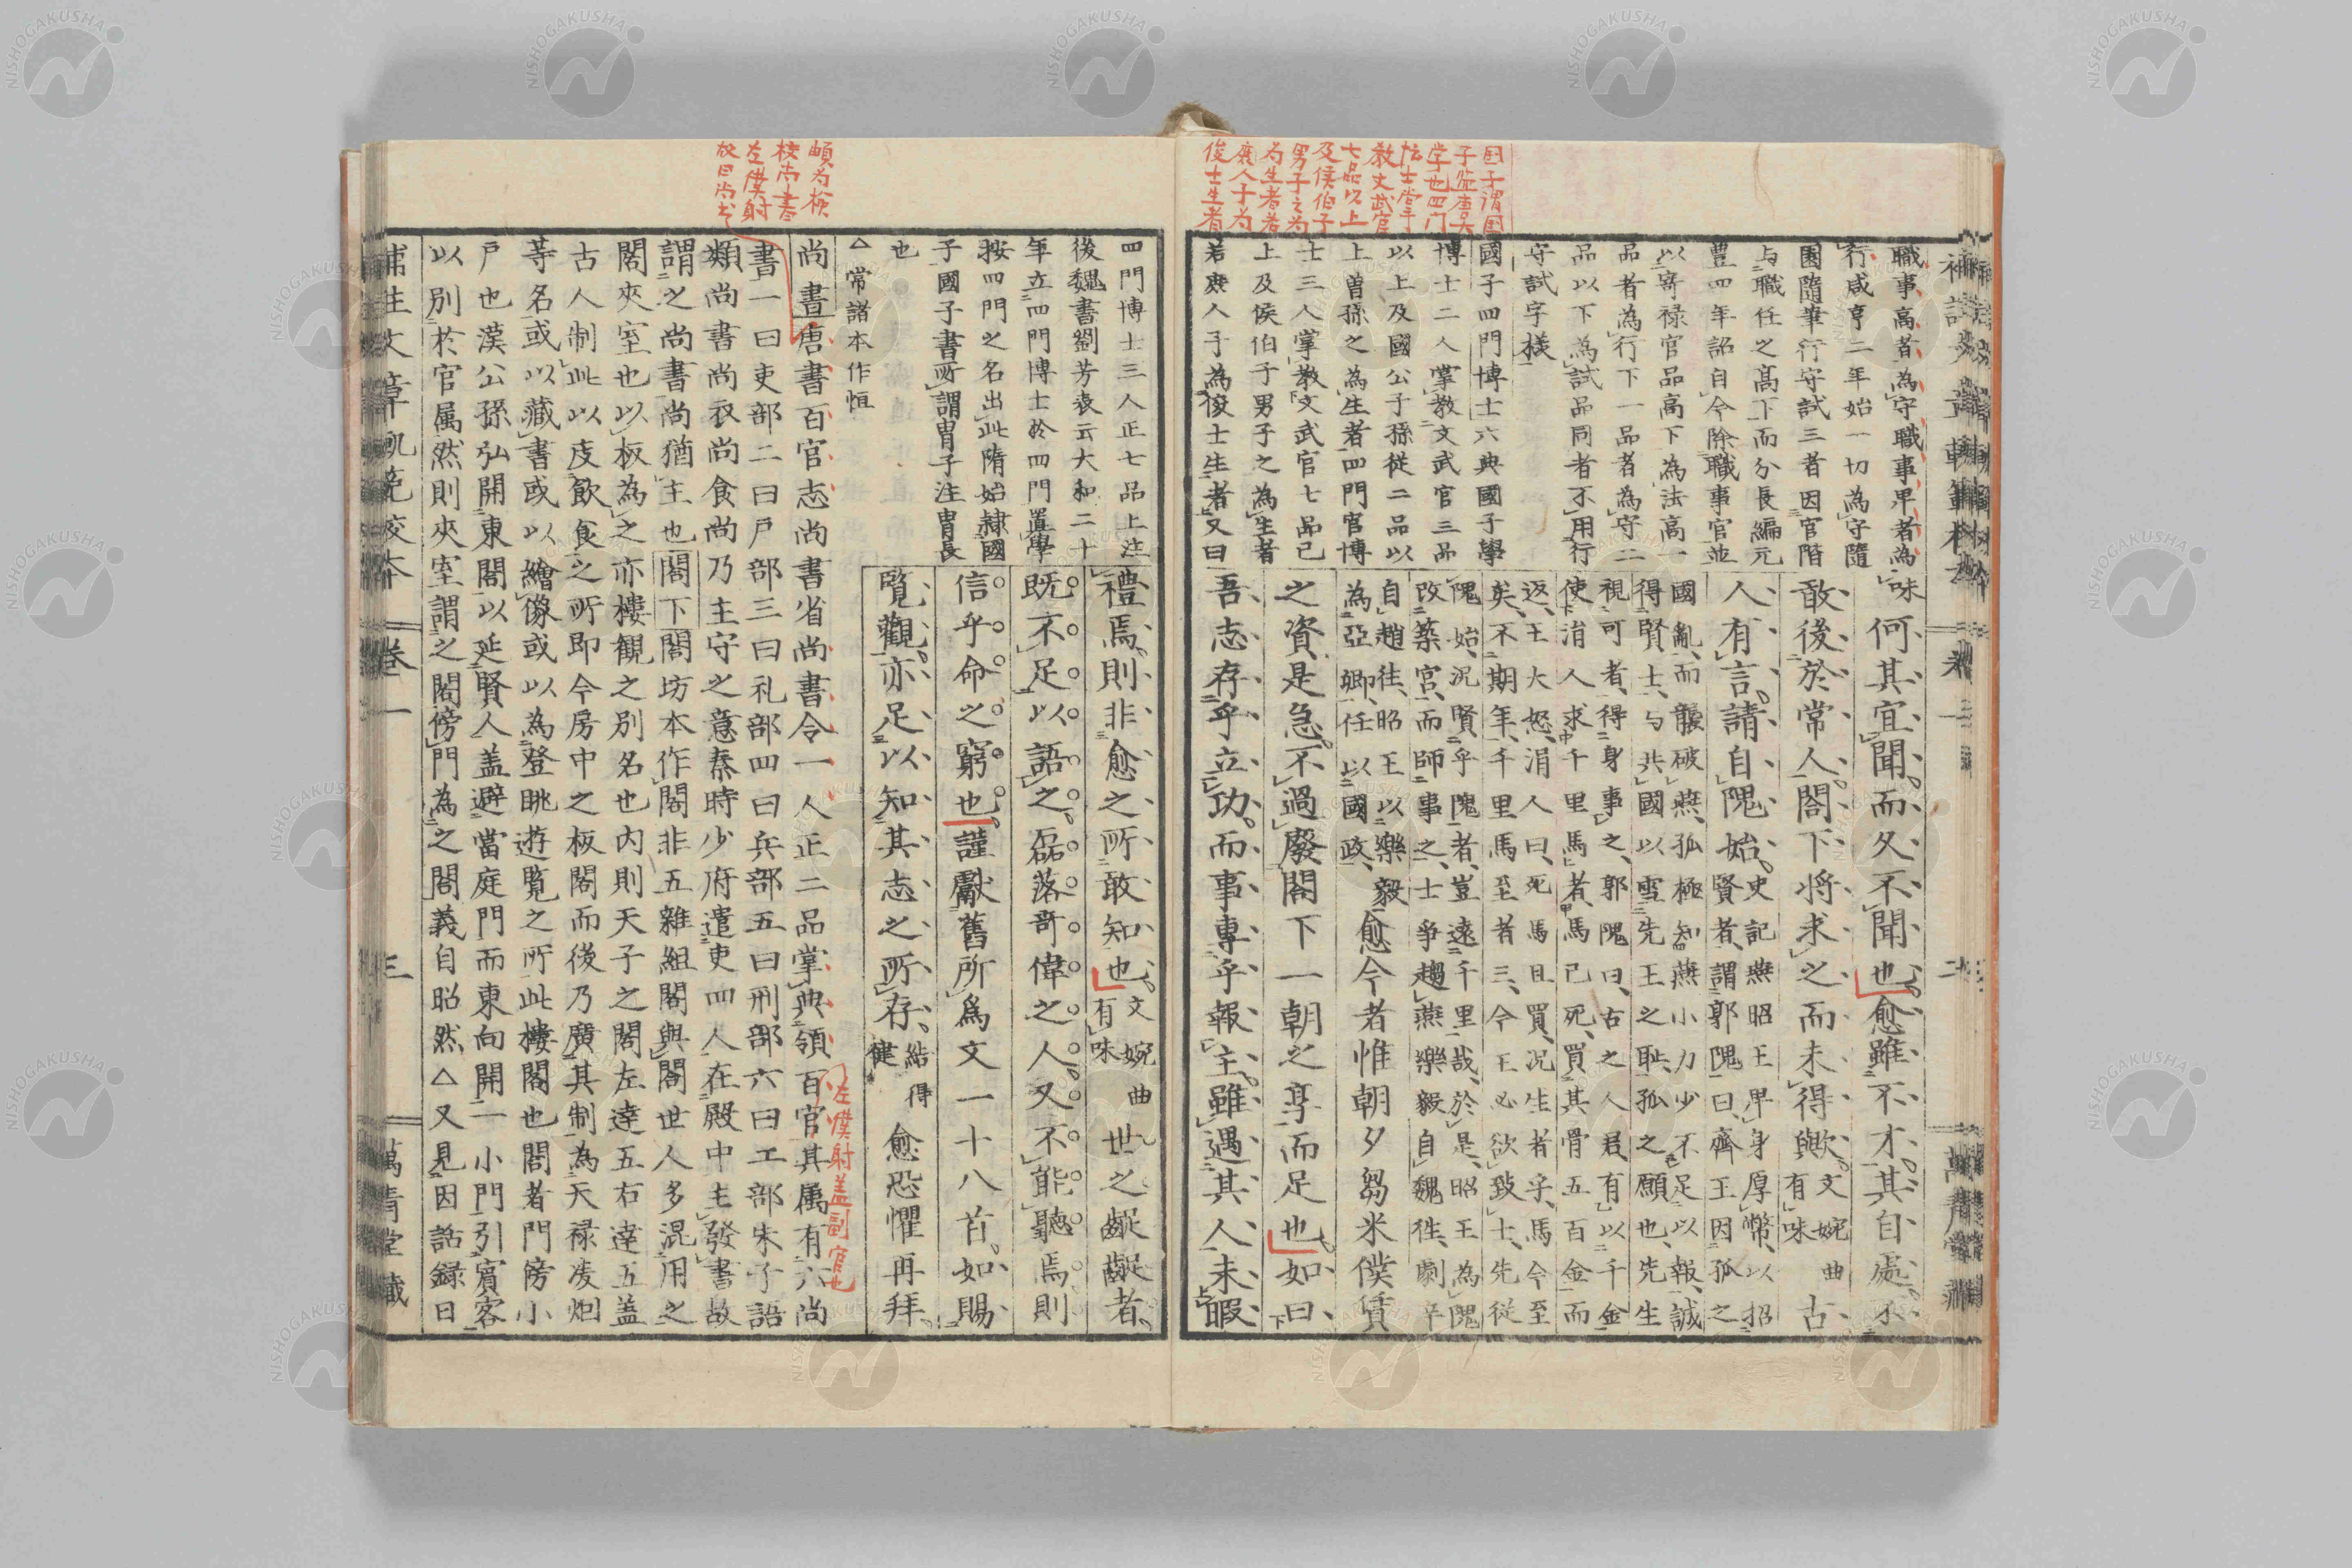 国子謂国
子監書大
学也四門
博士掌
教文武官
七品以上
及侯伯子
男子之為
為生者者
庶人子為
俊士生者
職事高者為守職事卑者為
行咸亨二年始一切為守隨
園隨筆行守試三者因官階
与職任之高下而分長編元
豐四年詔自今除職事官並
以寄禄官品高下為法高一
品者為行下一品者為守二
品以下為試品同者不用行
守試字様
國子四門博士六典國子學
博士二人掌教文武官三品
以上及國公子孫從二品以
上曽孫之為生者四門官博
士三人掌教文武官七品已
上及侯伯子男子之為生者
若庶人子為俊士生者又曰
味何其宜聞而久不聞也愈雖不才其自處不
敢後於常人閤下将求之而未得歟文婉曲有味古
人有言請自隗始史記燕昭王卑身厚幣以招
賢者謂郭隗曰齊王因孤之
國亂而襲破燕孤極知燕小力少不足以報誠
得賢士与共國以雪先王之耻孤之願也先生
視可者得身事之郭隗曰古之人君有以千金
使涓人求千里馬者馬已死買其骨五百金而
返王大怒涓人曰死馬且買况生者乎馬今至
矣不期年千里馬至者三今王必欲致士先從
隗始况賢乎隗者豈遠千里哉於是昭王為隗
改築宮而師事之士爭趨燕樂毅自魏徃劇辛
自趙徃昭王以樂毅
為亞卿任以國政
愈今者惟朝夕芻米僕賃
之資是急不過廢閤下一朝之享而足也如曰
吾志存乎立功而事專乎報主雖遇其人未暇
四門博士三人正七品上注
後魏書劉芳表云大和二十
年立四門博士於四門置學
按四門之名出此隋始隷國
子國子書所謂胄子注胄長
也
△常諸本作恒
禮焉則非愈之所敢知也文婉曲有味世之齪齪者
既不足以語之磊落奇偉之人又不能聽焉則
信乎命之窮也謹獻舊所爲文一十八首如賜
覽觀亦足以知其志之所存結得健愈恐懼再拜
頔為檢
校尚書
左僕射
故曰尚書
尚書唐書百官志尚書省尚書令一人正二品掌典領百官其属有六尚
左僕射盖副官也
書一曰吏部二曰戸部三曰礼部四曰兵部五曰刑部六曰工部朱子語
類尚書尚衣尚食尚乃主守之意秦時少府遣吏四人在殿中主發書故
謂之尚書尚猶主也閤下閤坊本作閣非五雜組閤與閣世人多混用之
閣夾室也以板為之亦樓観之別名也内則天子之閣左達五右達五盖
古人制此以庋飲食之所即今房中之板閣而後乃廣其制為天禄凌烟
等名或以藏書或以繪像或以為登眺遊覧之所此樓閣也閤者門傍小
戸也漢公孫弘開東閤以延賢人盖避當庭門而東向開一小門引賓客
以別於官属然則夾室謂之閣傍門為之閤義自昭然△又見因話録曰
補注文章軌範校本 卷一 三 萬青堂藏